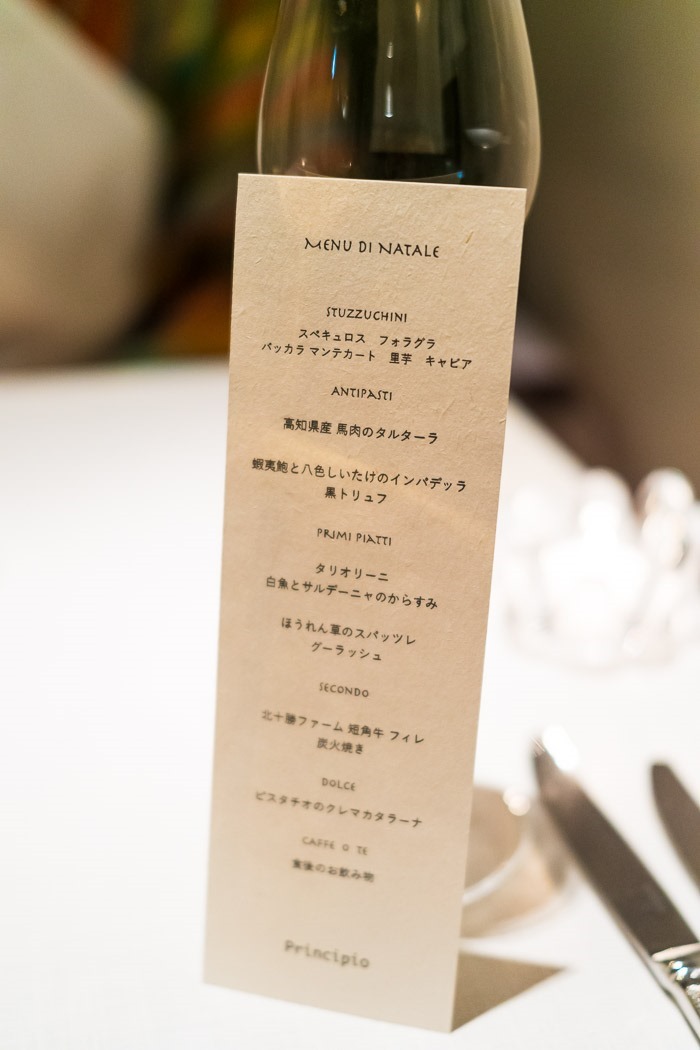 MENU DI NATALE
STUZZUCHINI
スペキュロス　フォラグラ
バッカラ マンテカート　里芋　キャビア
ANTIPASTI
高知県産 馬肉のタルターラ
蝦夷鮑と八色しいたけのインパデッラ
黒トリュフ
PRIMI PIATTI
タリオリーニ
白魚とサルデーニャのからすみ
ほうれん草のスパッツレ
グーラッシュ
SECONDO
北十勝ファーム 短角牛 フィレ
炭火焼き
DOLCE
ピスタチオのクレマカタラーナ
CAFFE O TE
食後のお飲み物
Principio